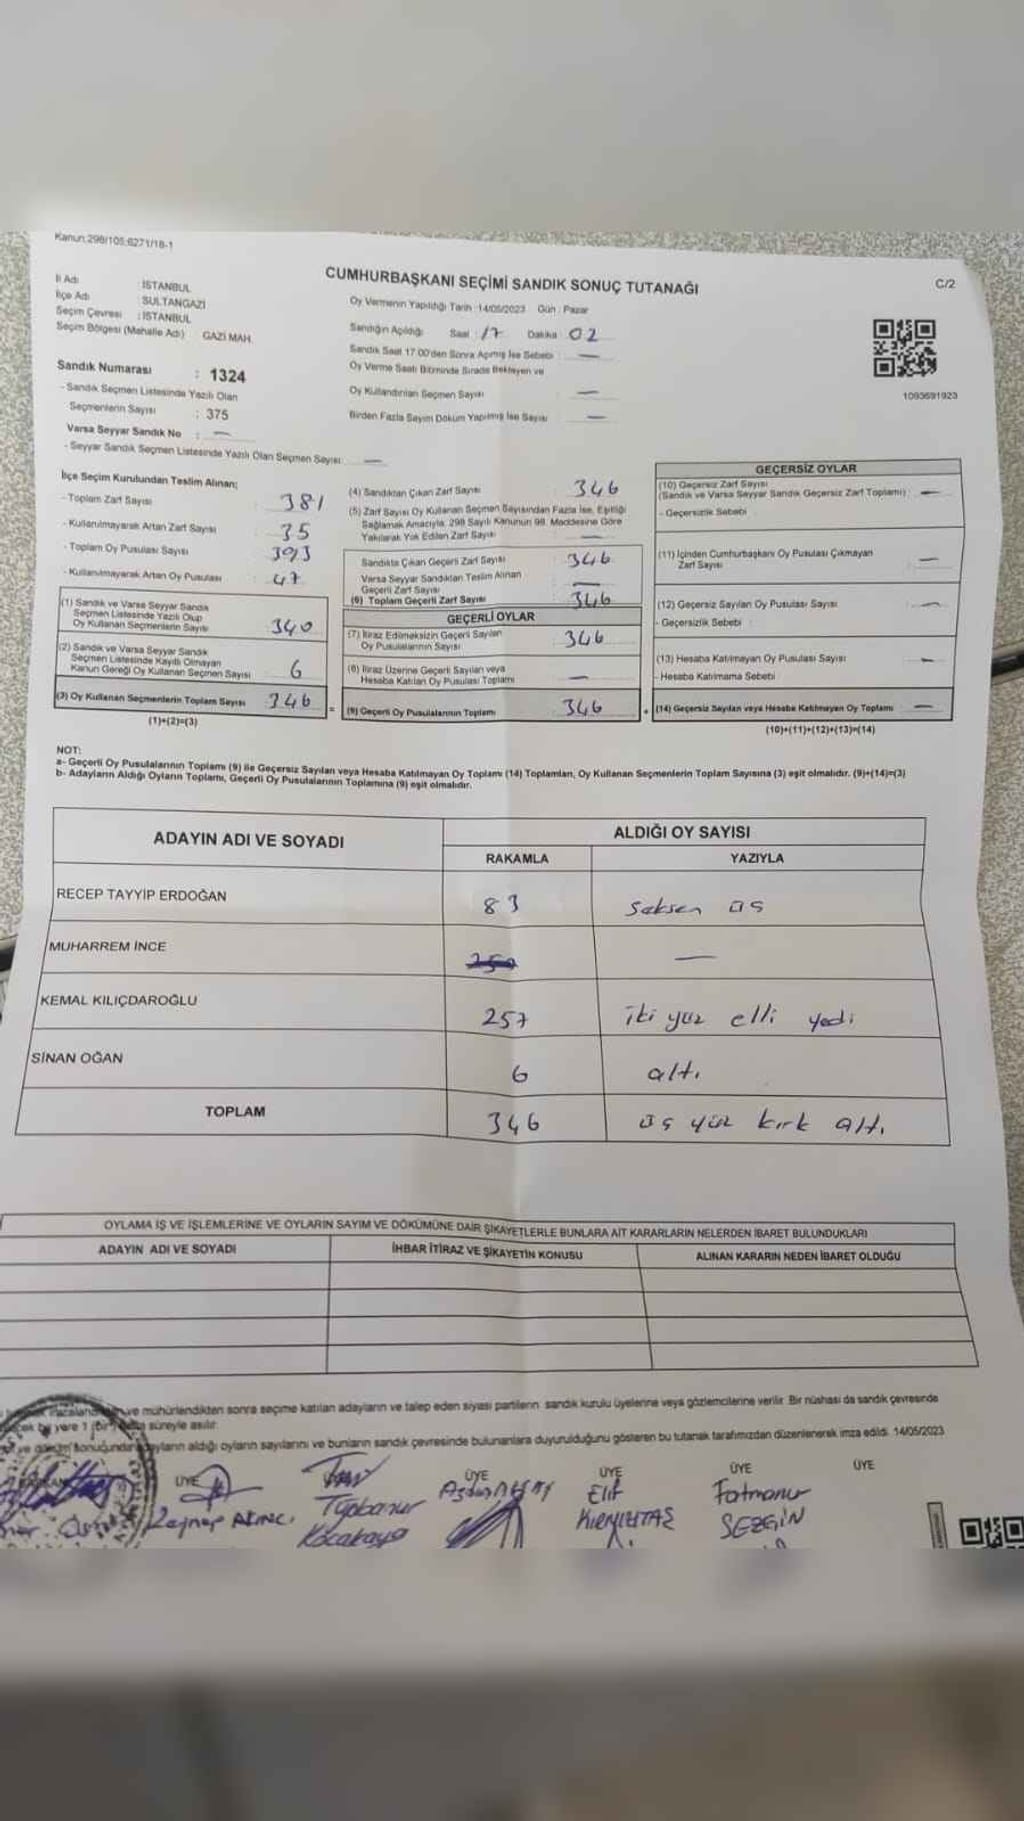 Kanun:298/105;6271/18-1
CUMHURBAŞKANI SEÇİMİ SANDIK SONUÇ TUTANAĞI
C/2
İl Adı : İSTANBUL
İlçe Adı : SULTANGAZİ
Seçim Çevresi : İSTANBUL
Seçim Bölgesi (Mahalle Adı) GAZİ MAH.
Oy Vermenin Yapıldığı Tarih :14/05/2023 Gün : Pazar
Sandığın Açıldığı Saat : 17 Dakika : 02
Sandık Saat 17:00'den Sonra Açılmış İse Sebebi : —
Oy Verme Saati Bitiminde Sırada Bekleyen ve
Oy Kullandırılan Seçmen Sayısı : —
Birden Fazla Sayım Döküm Yapılmış İse Sayısı : —
1093691923
Sandık Numarası : 1324
- Sandık Seçmen Listesinde Yazılı Olan
Seçmenlerin Sayısı : 375
Varsa Seyyar Sandık No : —
- Seyyar Sandık Seçmen Listesinde Yazılı Olan Seçmen Sayısı: —
İlçe Seçim Kurulundan Teslim Alınan;
- Toplam Zarf Sayısı : 381
- Kullanılmayarak Artan Zarf Sayısı : 35
- Toplam Oy Pusulası Sayısı : 393
- Kullanılmayarak Artan Oy Pusulası : 47
(1) Sandık ve Varsa Seyyar Sandık
Seçmen Listesinde Yazılı Olup
Oy Kullanan Seçmenlerin Sayısı : 340
(2) Sandık ve Varsa Seyyar Sandık
Seçmen Listesinde Kayıtlı Olmayan
Kanun Gereği Oy Kullanan Seçmen Sayısı 6
(3) Oy Kullanan Seçmenlerin Toplam Sayısı : 346
(1)+(2)=(3)
(4) Sandıktan Çıkan Zarf Sayısı : 346
(5) Zarf Sayısı Oy Kullanan Seçmen Sayısından Fazla İse, Eşitliği
Sağlamak Amacıyla, 298 Sayılı Kanunun 98. Maddesine Göre
Yakılarak Yok Edilen Zarf Sayısı : —
Sandıkta Çıkan Geçerli Zarf Sayısı : 346
Varsa Seyyar Sandıktan Teslim Alınan
Geçerli Zarf Sayısı : —
(6) Toplam Geçerli Zarf Sayısı : 346
GEÇERLİ OYLAR
(7) İtiraz Edilmeksizin Geçerli Sayılan
Oy Pusulalarının Sayısı : 346
(8) İtiraz Üzerine Geçerli Sayılan veya
Hesaba Katılan Oy Pusulası Toplamı : —
(9) Geçerli Oy Pusulalarının Toplamı : 346
GEÇERSİZ OYLAR
(10) Geçersiz Zarf Sayısı
(Sandık ve Varsa Seyyar Sandık Geçersiz Zarf Toplamı) : —
- Geçersizlik Sebebi :
(11) İçinden Cumhurbaşkanı Oy Pusulası Çıkmayan
Zarf Sayısı : —
(12) Geçersiz Sayılan Oy Pusulası Sayısı : —
- Geçersizlik Sebebi :
(13) Hesaba Katılmayan Oy Pusulası Sayısı : —
- Hesaba Katılmama Sebebi :
(14) Geçersiz Sayılan veya Hesaba Katılmayan Oy Toplamı : —
(10)+(11)+(12)+(13)=(14)
NOT:
a- Geçerli Oy Pusulalarının Toplamı (9) ile Geçersiz Sayılan veya Hesaba Katılmayan Oy Toplamı (14) Toplamları, Oy Kullanan Seçmenlerin Toplam Sayısına (3) eşit olmalıdır. (9)+(14)=(3)
b- Adayların Aldığı Oyların Toplamı, Geçerli Oy Pusulalarının Toplamına (9) eşit olmalıdır.
ADAYIN ADI VE SOYADI ALDIĞI OY SAYISI
RAKAMLA YAZIYLA
RECEP TAYYİP ERDOĞAN 83 seksen üç
MUHARREM İNCE —
KEMAL KILIÇDAROĞLU 257 iki yüz elli yedi
SİNAN OĞAN 6 altı
TOPLAM 346 üç yüz kırk altı
OYLAMA İŞ VE İŞLEMLERİNE VE OYLARIN SAYIM VE DÖKÜMÜNE DAİR ŞİKAYETLERLE BUNLARA AİT KARARLARIN NELERDEN İBARET BULUNDUKLARI
ADAYIN ADI VE SOYADI İHBAR İTİRAZ VE ŞİKAYETİN KONUSU ALINAN KARARIN NEDEN İBARET OLDUĞU
ve mühürlendikten sonra seçime katılan adayların ve talep eden siyasi partilerin sandık kurulu üyelerine veya gözlemcilerine verilir. Bir nüshası da sandık çevresinde
bir yere 1 (bir) süreyle asılır.
adayların aldığı oyların sayılarını ve bunların sandık çevresinde bulunanlara duyurulduğunu gösteren bu tutanak tarafımızdan düzenlenerek imza edildi. 14/05/2023
ÜYE ÜYE ÜYE ÜYE ÜYE
Zeynep AKINCI
Elif
Fatmanur
SEZGİN